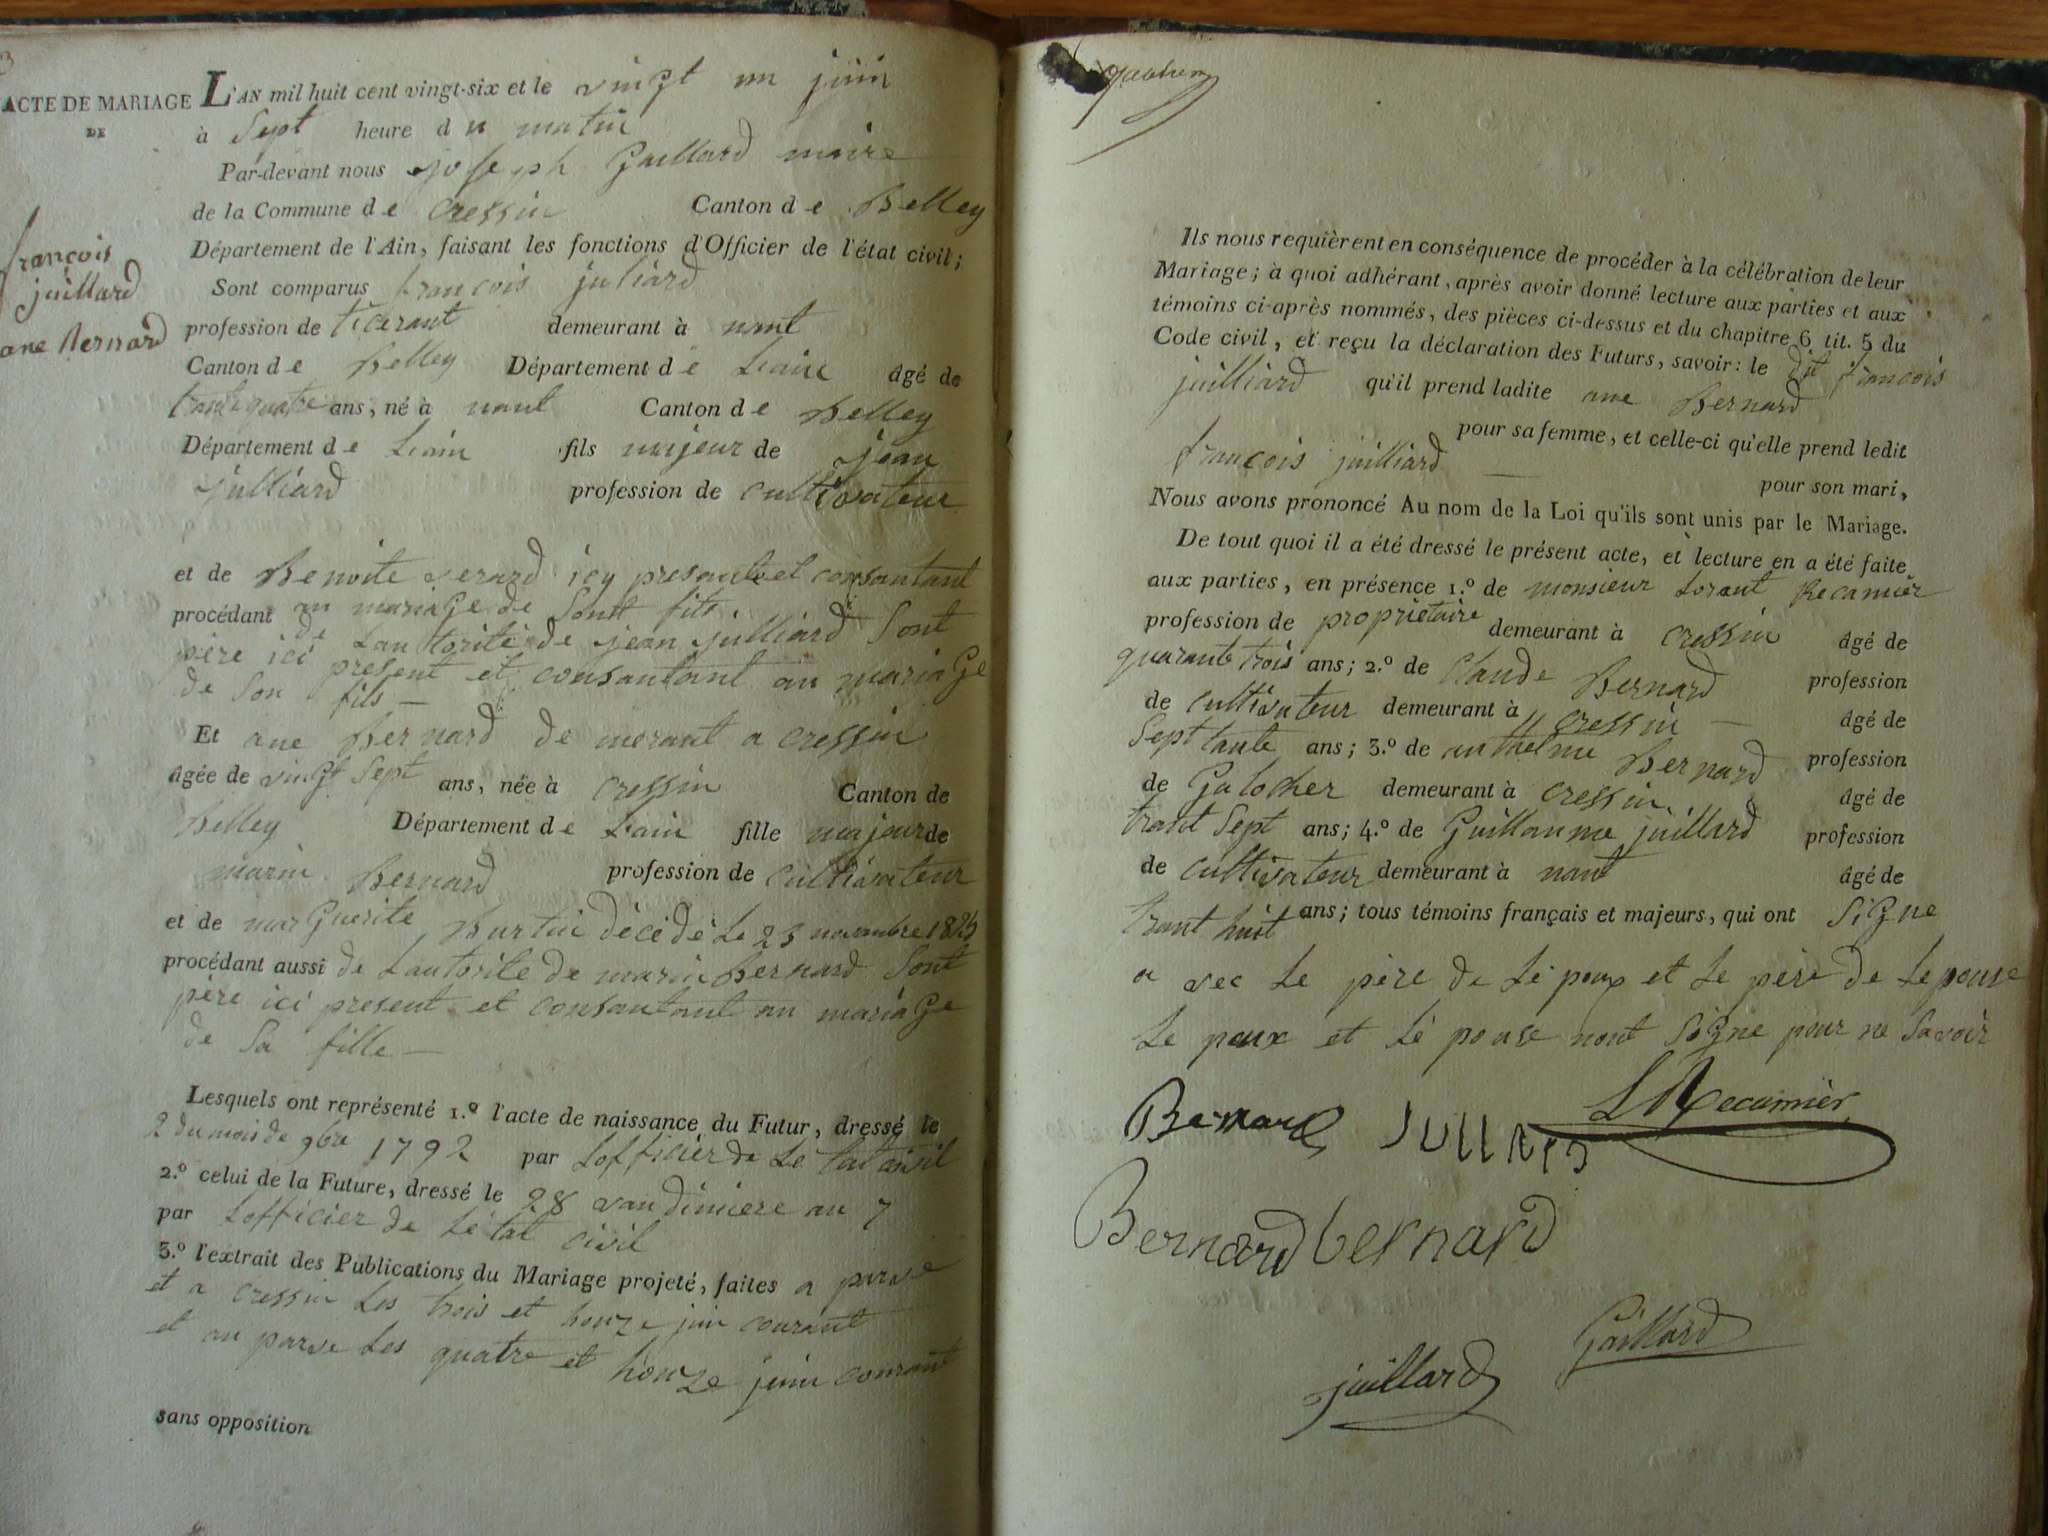 ACTE DE MARIAGE
DE
françois
juillard
ane Bernard
L'AN mil huit cent vingt-six et le vingt un juin
à Sept heure du matin
Par-devant nous joseph Gaillard maire
de la Commune de Cressin Canton de Belley
Département de l'Ain, faisant les fonctions d'Officier de l'état civil;
Sont comparus francois juliard
profession de ticerant demeurant à nant
Canton de Belley Département de Lain âgé de
trantequatre ans, né à nant Canton de Belley
Département de Lain fils majeur de jean
julliard profession de cultivateur
et de Benoite verard icy presante et consantant
procédant au mariage de Sont fils
de Lautorité de jean julliard Sont
père ici present et consantant au mariage
de Son fils —
Et ane Bernard demerant a cressin
âgée de vingt Sept ans, née à cressin Canton de
Belley Département de Lain fille majeur de
marin Bernard profession de cultivateur
et de marGuerite Burtin décédé Le 23 novembre 1825
procédant aussi de Lautorite de marin Bernard Sont
père ici present et consantant au mariaGe
de Sa fille —
Lesquels ont représenté 1.º l'acte de naissance du Futur, dressé le
2 du mois de 9bre 1792 par Lofficier de Le tat civil
2.º celui de la Future, dressé le 28 vandimiere an 7
par Lofficier de Lé tat civil
3.º l'extrait des Publications du Mariage projeté, faites a parve
et a cressin Les trois et honze juin courant
et au parve Les quatre et honze juin courant
sans opposition
Ils nous requièrent en conséquence de procéder à la célébration de leur
Mariage; à quoi adhérant, après avoir donné lecture aux parties et aux
témoins ci-après nommés, des pièces ci-dessus et du chapitre 6 tit. 5 du
Code civil, et reçu la déclaration des Futurs, savoir: le dit francois
juilliard qu'il prend ladite ane Bernard
pour sa femme, et celle-ci qu'elle prend ledit
francois juilliard —
pour son mari,
Nous avons prononcé Au nom de la Loi qu'ils sont unis par le Mariage.
De tout quoi il a été dressé le présent acte, et lecture en a été faite
aux parties, en présence 1.º de monsieur Lorant Recamier
profession de propriétaire demeurant à cressin âgé de
quarante trois ans; 2.º de Claude Bernard profession
de cultivateur demeurant à cressin — âgé de
Sept tante ans; 3.º de anthelme Bernard profession
de Galocher demeurant à cressin âgé de
trant Sept ans; 4.º de Guillaume juillard profession
de cultivateur demeurant à nant âgé de
trant huit ans; tous témoins français et majeurs, qui ont SiGne
a vec Le père de Lé poux et Le père de Le pouse
Le poux et Lé pouse nont SiGne pour ne Savoir
Bernard JULLIARD LRecamier
Bernard bernard
Gaillard
juillard